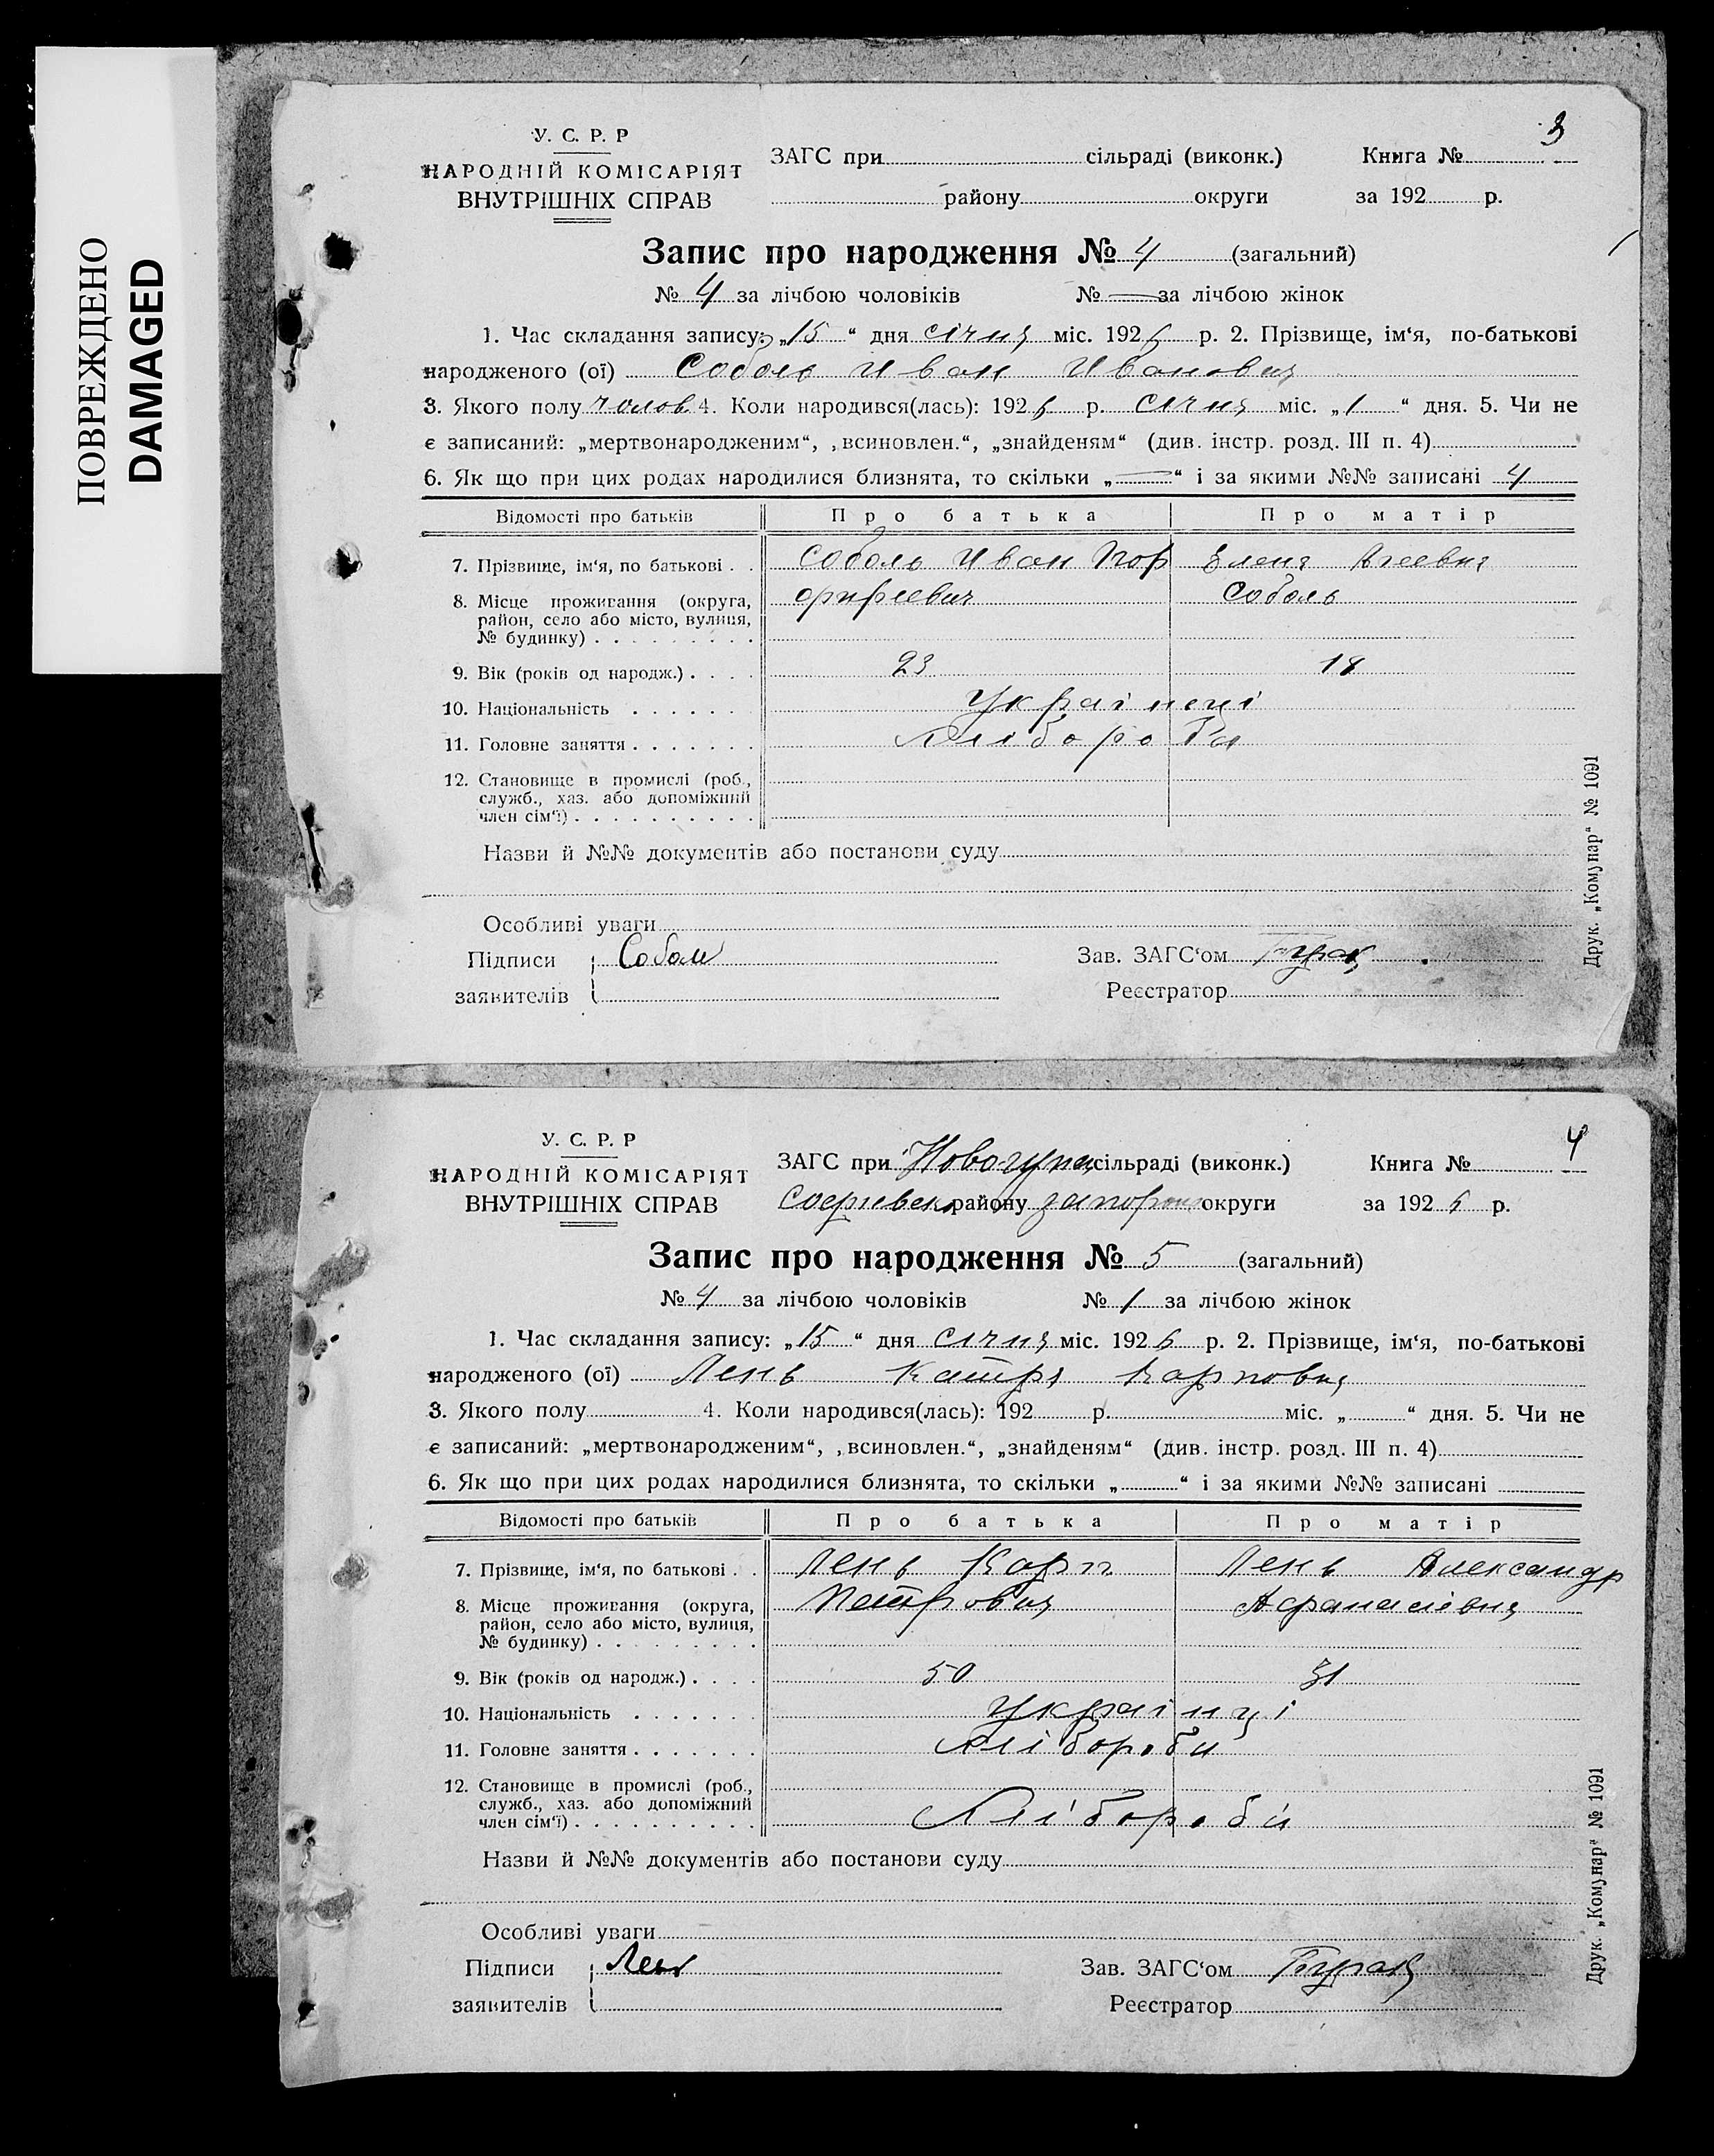 ПОВРЕЖДЕНО
DAMAGED
3
У. С. Р. Р
НАРОДНІЙ КОМІСАРІЯТ
ВНУТРІШНІХ СПРАВ
ЗАГС при сільраді (виконк.) Книга №
району округи за 192 р.
Запис про народження № 4 (загальний)
№ 4 за лічбою чоловіків № — за лічбою жінок
1. Час складання запису: „15“ дня січня міс. 1926 р. 2. Прізвище, ім‘я, по-батькові
народженого (ої) Соболь Иван Иванович
3. Якого полу чолов 4. Коли народився(лась): 1926 р. січня міс. „1“ дня. 5. Чи не
є записаний: „мертвонародженим“, „всиновлен.“, „знайденям“ (див. інстр. розд. III п. 4)
6. Як що при цих родах народилися близнята, то скільки „—“ і за якими №№ записані 4
Відомості про батьків Про батька Про матір
7. Прізвище, ім‘я, по батькові . . Соболь Иван Пор Елена Агеевна
8. Місце проживання (округа, фириевич Соболь
район, село або місто, вулиця,
№ будинку) . . . . . . . . .
9. Вік (років од народж.) . . . . 23 18
10. Національність . . . . . . Українці
11. Головне заняття . . . . . . . Хлібороби
12. Становище в промислі (роб.,
служб., хаз. або допоміжний
член сім‘ї) . . . . . . . . . .
Назви й №№ документів або постанови суду
Особливі уваги
Підписи Соболь Зав. ЗАГС‘ом
заявителів Реєстратор
Друк. „Комунар“ № 1091
4
У. С. Р. Р
НАРОДНІЙ КОМІСАРІЯТ
ВНУТРІШНІХ СПРАВ
ЗАГС при сільраді (виконк.) Книга №
Софиевск району запорож округи за 1926 р.
Запис про народження № 5 (загальний)
№ 4 за лічбою чоловіків № 1 за лічбою жінок
1. Час складання запису: „15“ дня січня міс. 1926 р. 2. Прізвище, ім‘я, по-батькові
народженого (ої) Лень Катря Карповна
3. Якого полу 4. Коли народився(лась): 192 р. міс. „ “ дня. 5. Чи не
є записаний: „мертвонародженим“, „всиновлен.“, „знайденям“ (див. інстр. розд. III п. 4)
6. Як що при цих родах народилися близнята, то скільки „ “ і за якими №№ записані
Відомості про батьків Про батька Про матір
7. Прізвище, ім‘я, по батькові . . Лень Карп Лень Александр
8. Місце проживання (округа, Петрович Афанасієвна
район, село або місто, вулиця,
№ будинку) . . . . . . . . .
9. Вік (років од народж.) . . . . 50 31
10. Національність . . . . . . . Українці
11. Головне заняття . . . . . . . Хлібороби
12. Становище в промислі (роб.,
служб., хаз. або допоміжний
член сім‘ї) . . . . . . . . . . Хлібороби
Назви й №№ документів або постанови суду
Особливі уваги
Підписи Лень Зав. ЗАГС‘ом
заявителів Реєстратор
Друк. „Комунар“ № 1091